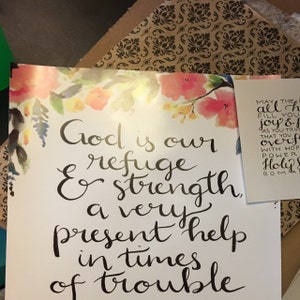 God is our
refuge
& strength,
a very
present help
in times
of trouble
MAY THE
FILL YOU
joy &
AS YOU
THAT YOU
WITH
POWER
Holy
ROM